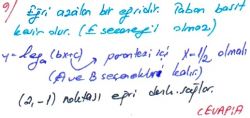 9) Eğri azalan bir eğridir. Taban basit
kesir olur. (E seçeneği olmaz)
y = log_a (bx+c) parantez içi x-1/2 olmalı
(A ve B seçenekleri kalır.)
(2, -1) noktası eğri denk. sağlar.
CEVAP:A